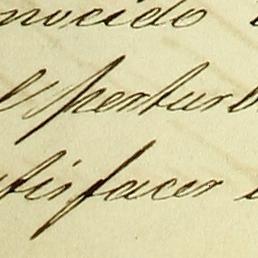 nocido
perturb
tisfacer